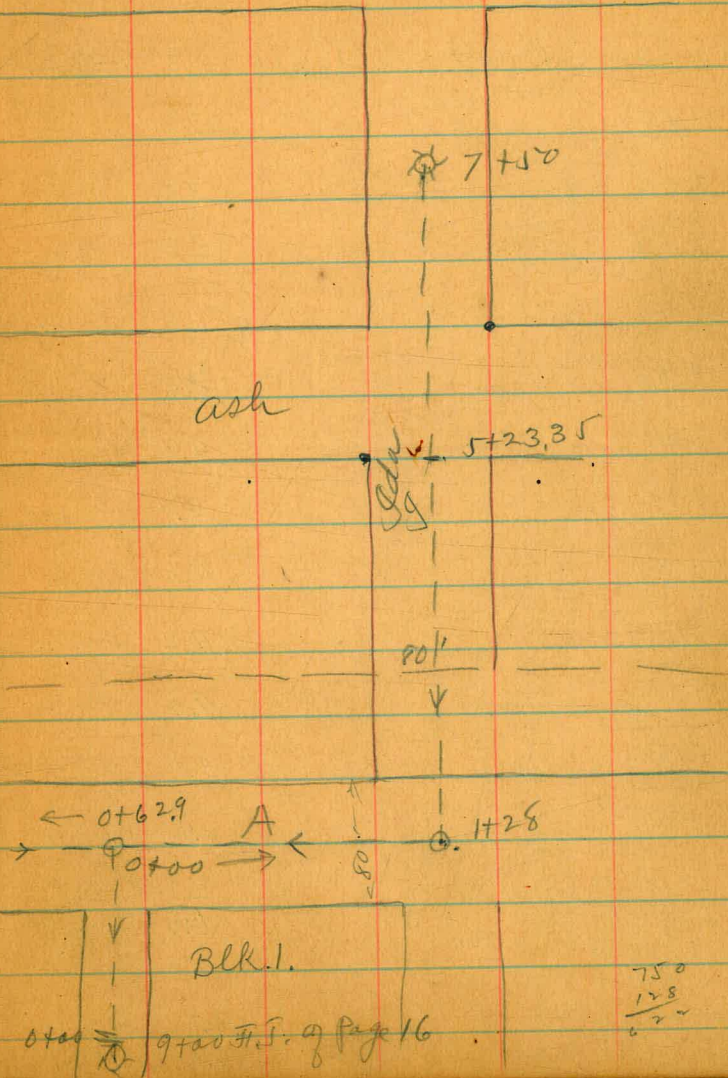 7+50
ash
5+23.35
80'
0+62.9
A
1+28
0+00
80
Blk.1.
750
128
622
0+00
9+00 F.J. of Page 16